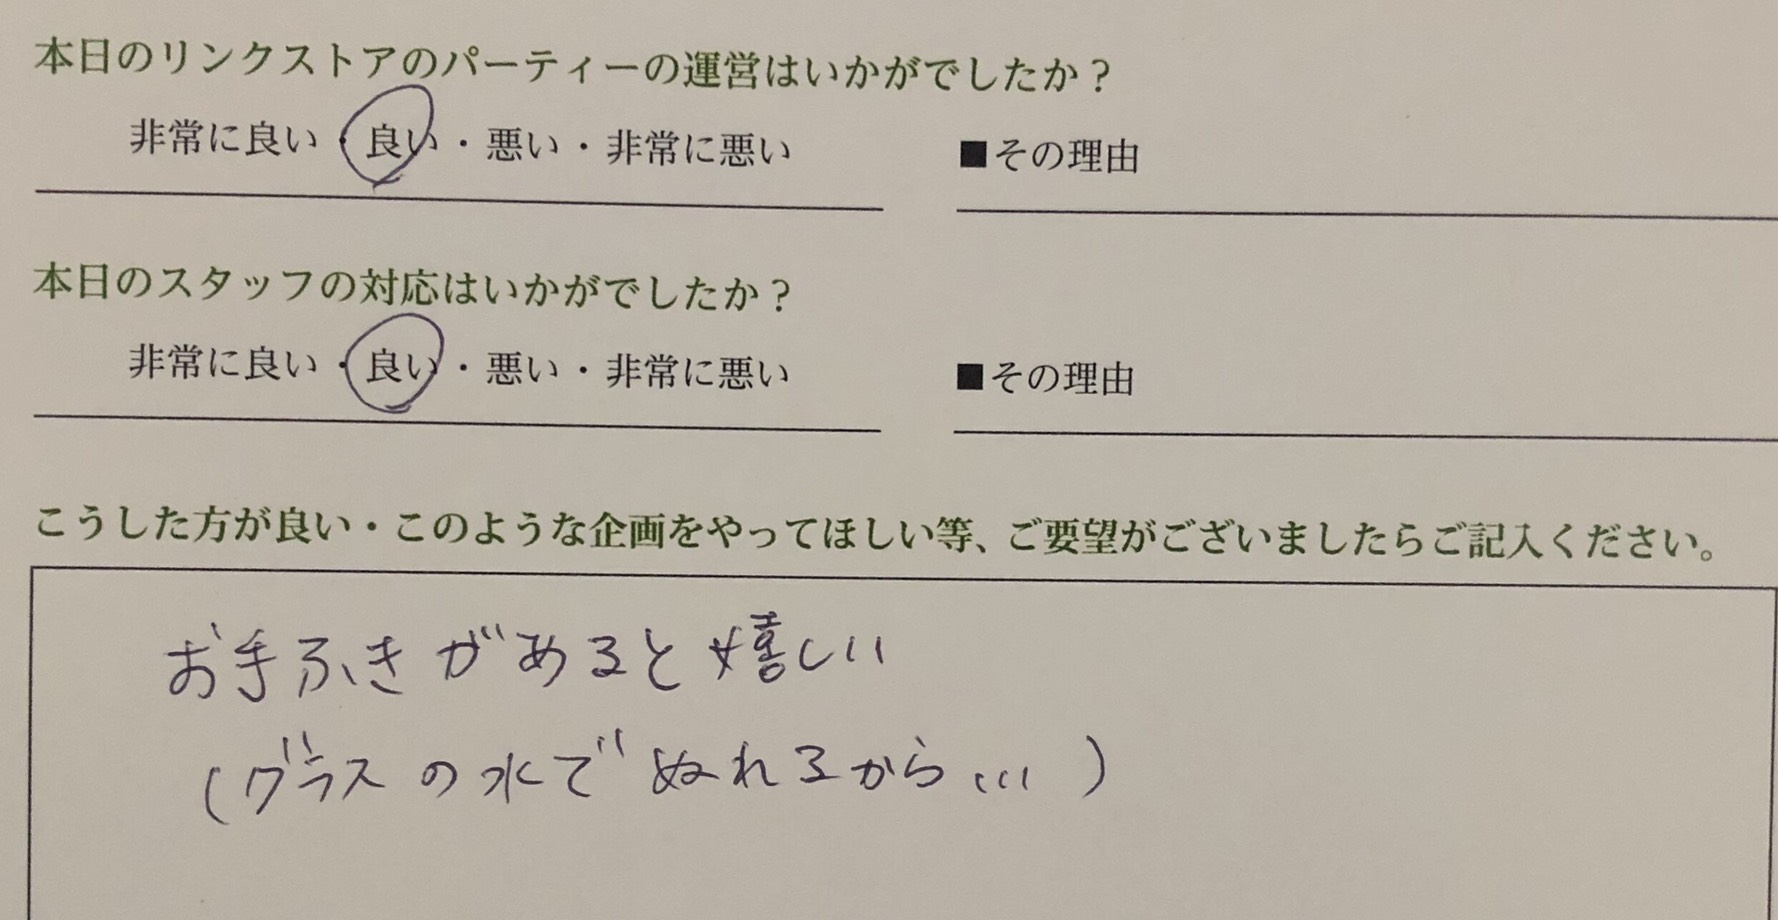 本日のリンクストアのパーティーの運営はいかがでしたか？
非常に良い・良い・悪い・非常に悪い ■その理由
本日のスタッフの対応はいかがでしたか？
非常に良い・良い・悪い・非常に悪い ■その理由
こうした方が良い・このような企画をやってほしい等、ご要望がございましたらご記入ください。
お手ふきがあると嬉しい
（グラスの水でぬれるから...）